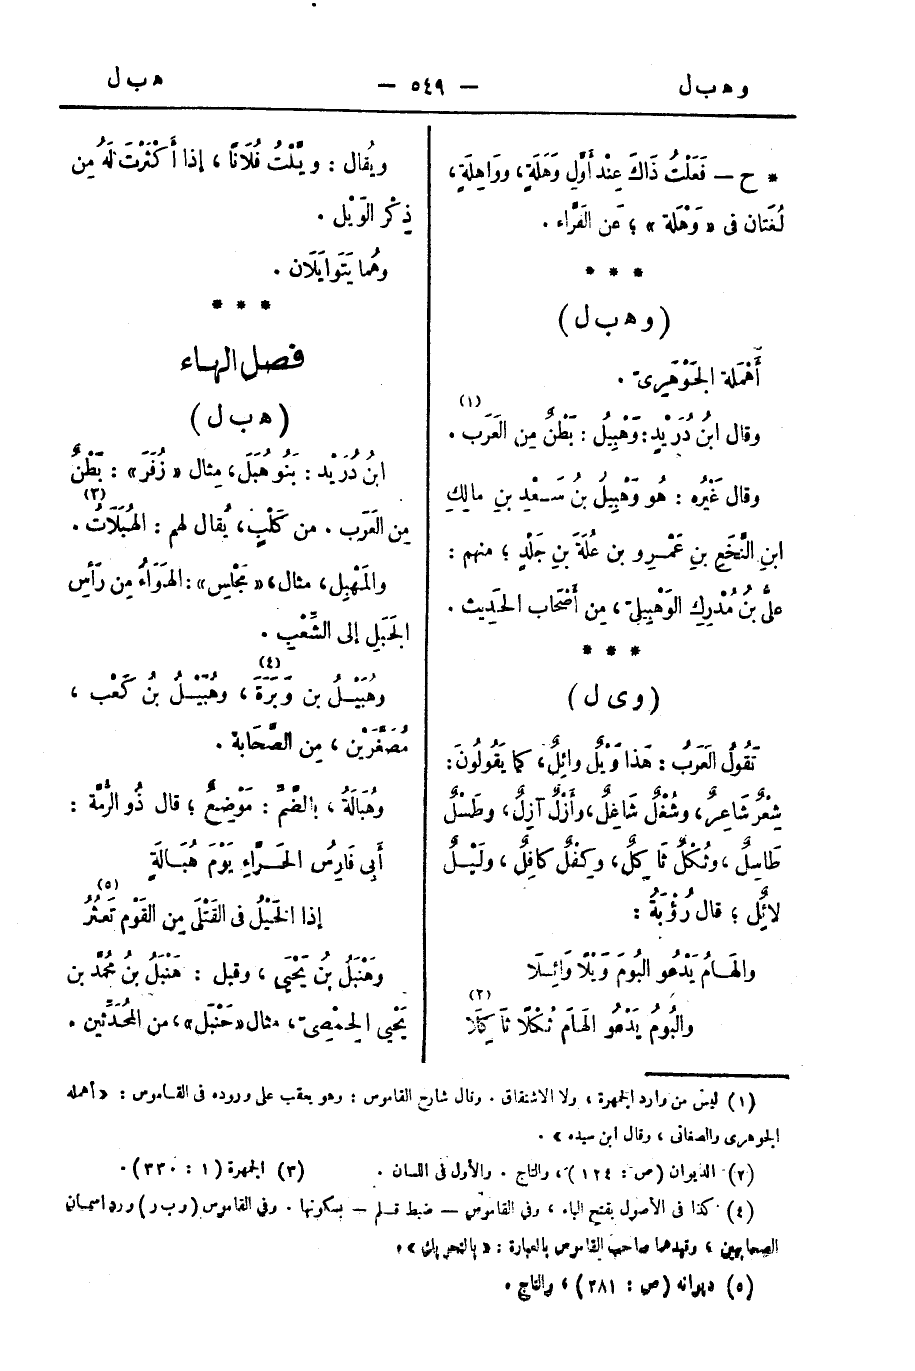 وهبل — ٥٤٩ — هبل
* ح — فَعَلْتُ ذَاكَ عِنْد أَوَّلِ وَهَلَةٍ، ووَاهِلَةٍ،
لُغَتَان فى « وَهْلَة » ؛ عن الفَرَّاء .
* * *
(وهبل)
أَهْمَلَهُ الجَوْهَرِىّ .
وقال ابنُ دُرَيْدٍ: وَهْبِيلُ : بَطْنٌ مِن العَرَب . (١)
وقال غَيْرُه : هُو وَهْبِيلُ بنُ سَعْدِ بنِ مالِكِ
ابنِ النَّخَعِ بنِ عَمْرِو بن عُلَةَ بنِ جَلْدٍ ؛ منهم :
علىُّ بنُ مُدْرِك الوَهْبِيلىّ ، مِن أَصْحَاب الحَدِيث .
* * *
(وىل)
تَقُولُ العَرَبُ : هَذا وَيْلٌ وائِلٌ، كما يَقُولُونَ:
شِعْرٌ شَاعِرٌ، وشُغْلٌ شَاغِلٌ، وأَزْلٌ آزِلٌ، وطَسْلٌ
طَاسِلٌ ، وثُكْلٌ ثَاكِلٌ، وكِفْلٌ كافِلٌ ، ولَيْلٌ
لائِلٌ ؛ قال رُؤْبَةُ :
والهَامُ يَدْعُو البُومَ وَيْلًا وَائِلَا
والبُومُ يَدْعُو الهَامَ ثُكْلًا ثَاكِلَا (٢)
ويُقال : وَيَّلْتُ فُلَانًا ، إذا أَكْثَرْتَ لَهُ مِن
ذِكْرِ الوَيْل .
وهُما يَتَوَايَلَان .
* * *
فصل الهاء
(هبل)
ابنُ دُرَيْد : بَنُو هُبَلَ، مِثال « زُفَرَ» : بَطْنٌ
مِن العَرَب . مِن كَلْبٍ، يُقال لهم : الهُبَلَاتُ . (٣)
والمَهْبِلُ، مثال، « مَجْلِس» : الهَوَاءُ مِن رَأْسِ
الجَبَلِ إلى الشِّعْبِ .
وهُبَيْلُ بن وَبَرَةَ ، وهُبَيْلُ بنُ كَعْب ، (٤)
مُصَغَّرَيْن ، مِن الصَّحَابة .
وهُبَالَةُ ، بالضَّمّ : مَوْضِعٌ ؛ قال ذُو الرُّمَّة :
أَبِى فَارِسُ الحَوَّاءِ يَوْمَ هُبَالَةٍ
إذا الخَيْلُ فى القَتْلَى مِن القَوْمِ تَعْثُرُ (٥)
وهَنْبَلُ بنُ يَحْيَى ، وقيل : هَنْبَلُ بنُ مُحَمَّد بن
يَحْيى الحِمْصِىّ ، مثال« حَنْبَل» ، من المُحَدِّثين .
(١) ليس من وارد الجمهرة ، ولا الاشتقاق . وقال شارح القاموس : وهو يعقب على وروده فى القاموس : « أهمله
الجوهرى والصغانى ، وقال ابن سيده » .
(٢) الديوان (ص : ١٢٤) ، والتاج . والأول فى اللسان . (٣) الجمهرة (١ : ٣٣٠) .
(٤) كذا فى الأصول بفتح الباء ، وفى القاموس — ضبط قلم — بسكونها . وفى القاموس (وبر) ورد اسمان
الصحابيين ، وقيدهما صاحب القاموس بالعبارة : « بالتحريك » .
(٥) ديوانه (ص : ٢٨١) ، والتاج .